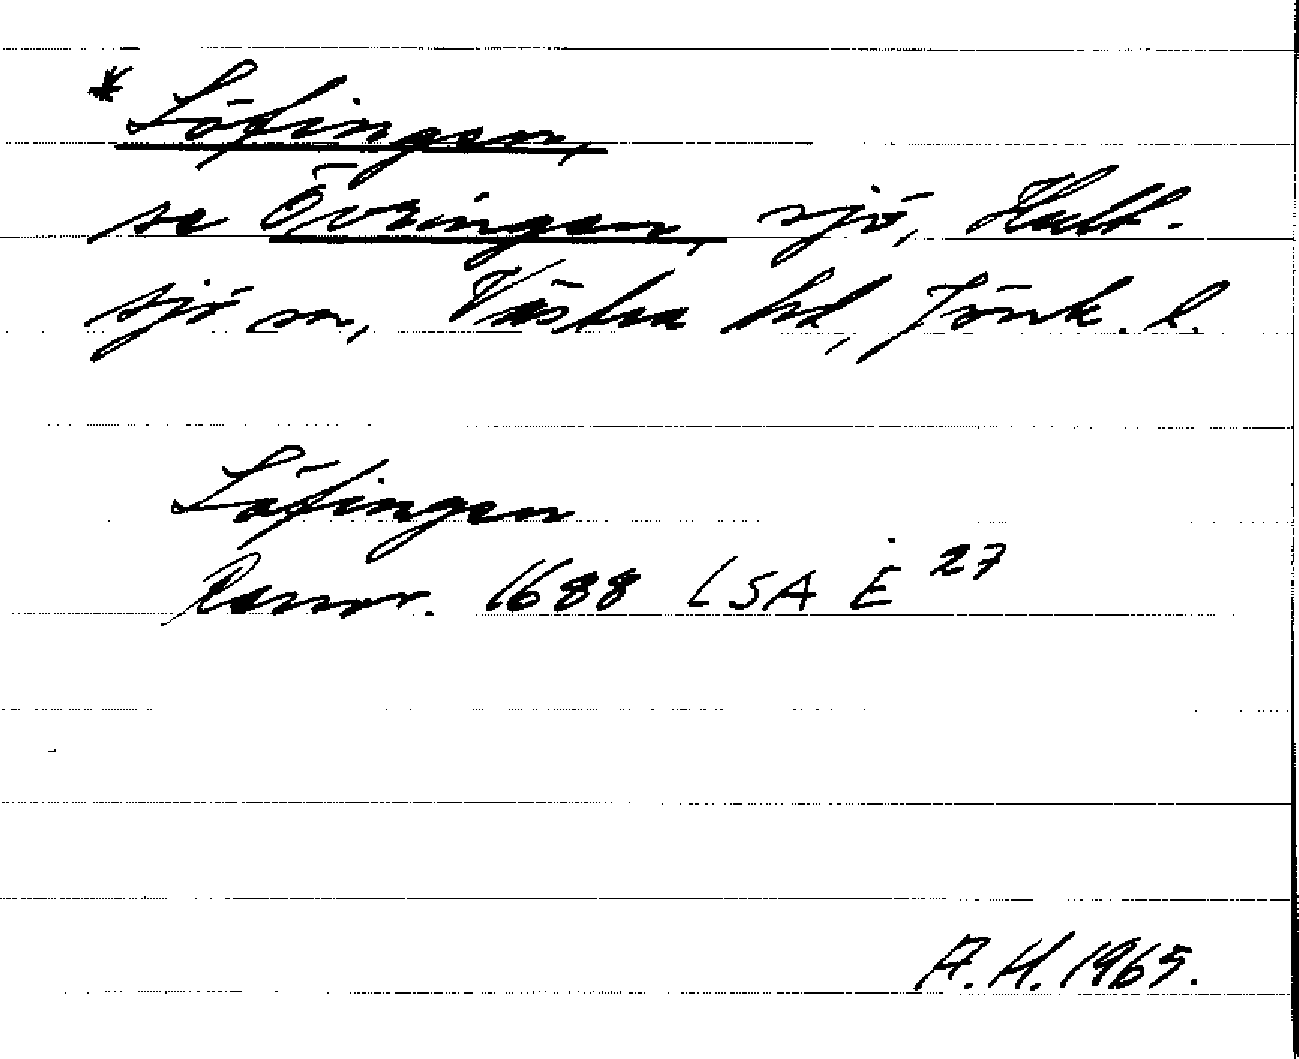 * Löfingen,
se Övringen, sjö, Hult-
sjö sn, Västra hd, Jönk. l.
Löfingen
Rannr. 1688 LSA E 27
A.H. 1965.